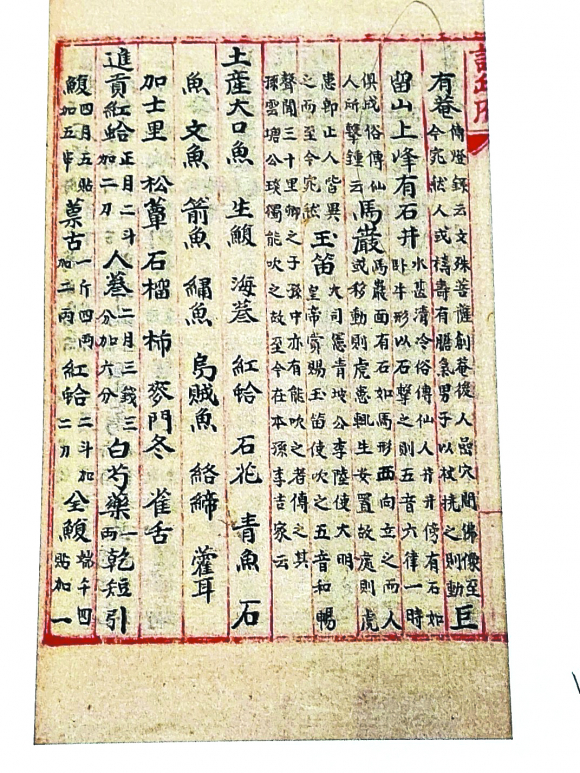 有菴傳燈錄云文殊菩薩創菴後人嵓穴間佛像至今宛然人或禱壽有膳氣男子以杖撓之則動巨
留山上峰有石井水甚清冷俗傳仙人井井傍有石如臥牛形以石擊之則五音六律一時
俱成俗傳仙人所擊鍾云馬巖馬巖面有石如馬形西向立之而人或移動則虎患輒生安置故處則虎
患卽止人皆異之而至今宛然玉笛大司憲青坡公李陸使大明皇帝賞賜玉笛使吹之五音和暢
聲聞三十里卿之子孫中亦有能吹之者傳之其孫雲塘公琰獨能吹之故至今在本孫李吉家云
土産大口魚 生鰒 海蔘 紅蛤 石花 青魚 石
魚 文魚 箭魚 鱐魚 烏賊魚 絡締 藿耳
加士里 松蕈 石榴 柿 麥門冬 雀舌
進貢紅蛤正月二斗加二刀人蔘二月三錢三分加六分白芍藥一両乾短引
鰒四月五貼加五串藁古一斤四両加二両紅蛤二斗加二刀全鰒端午四貼加一